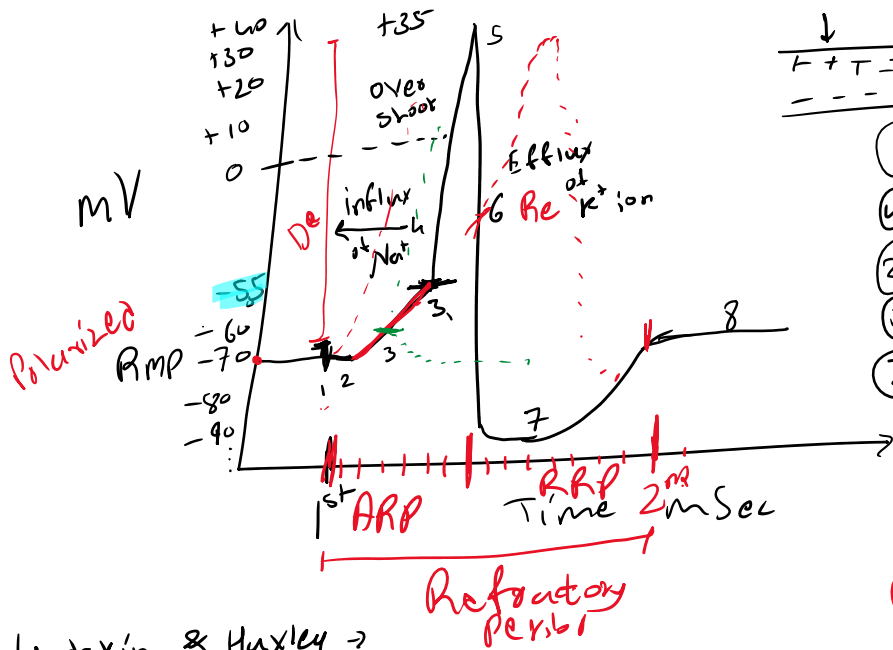 +40
+30
+20
+10
0
mV
-55
-60
RMP -70
-80
-90
Polarized
+35
over
shoot
De
influx
of Na+
Efflux
of
K+ ion
Re
1
2
3
3
4
5
6
7
8
1st
ARP
RRP
Time
2nd
mSec
Refractory
& Huxley →